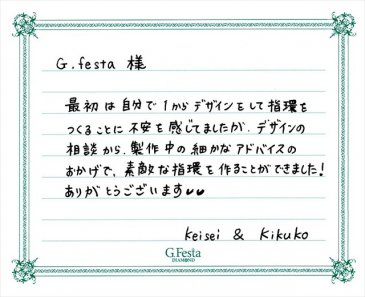 G.festa 様
最初は自分で1からデザインをして指環を
つくることに不安を感じてましたが、デザインの
相談から、製作中の細かなアドバイスの
おかげで、素敵な指環を作ることができました!
ありがとうございます♥♥
Keisei & Kikuko
G.Festa
DIAMOND